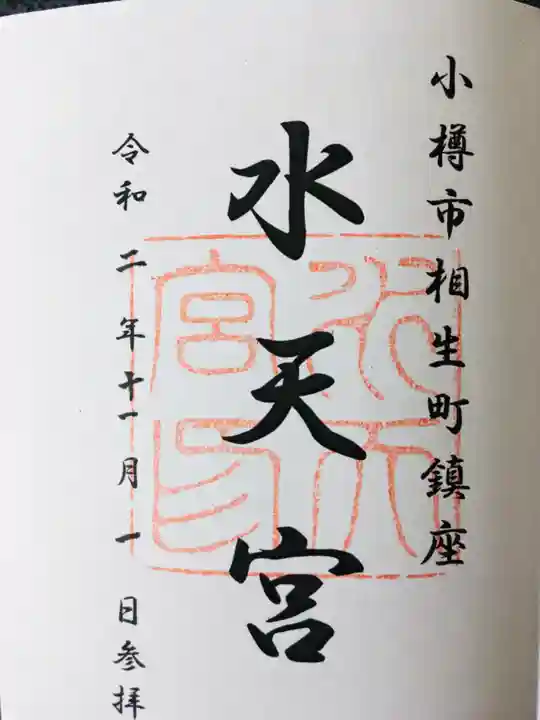 小樽市相生町鎮座
水天宮
令和二年十一月一日参拝
水天宮印